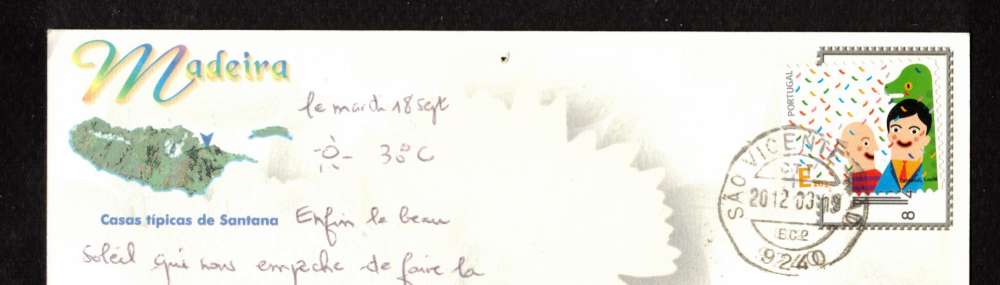 Madeira
le mardi 18 sept
30°C
Casas típicas de Santana
Enfin le beau
soleil qui nous empeche de faire la
PORTUGAL
E
SÃO VICENTE
CTT
2012 09 19
9240
84